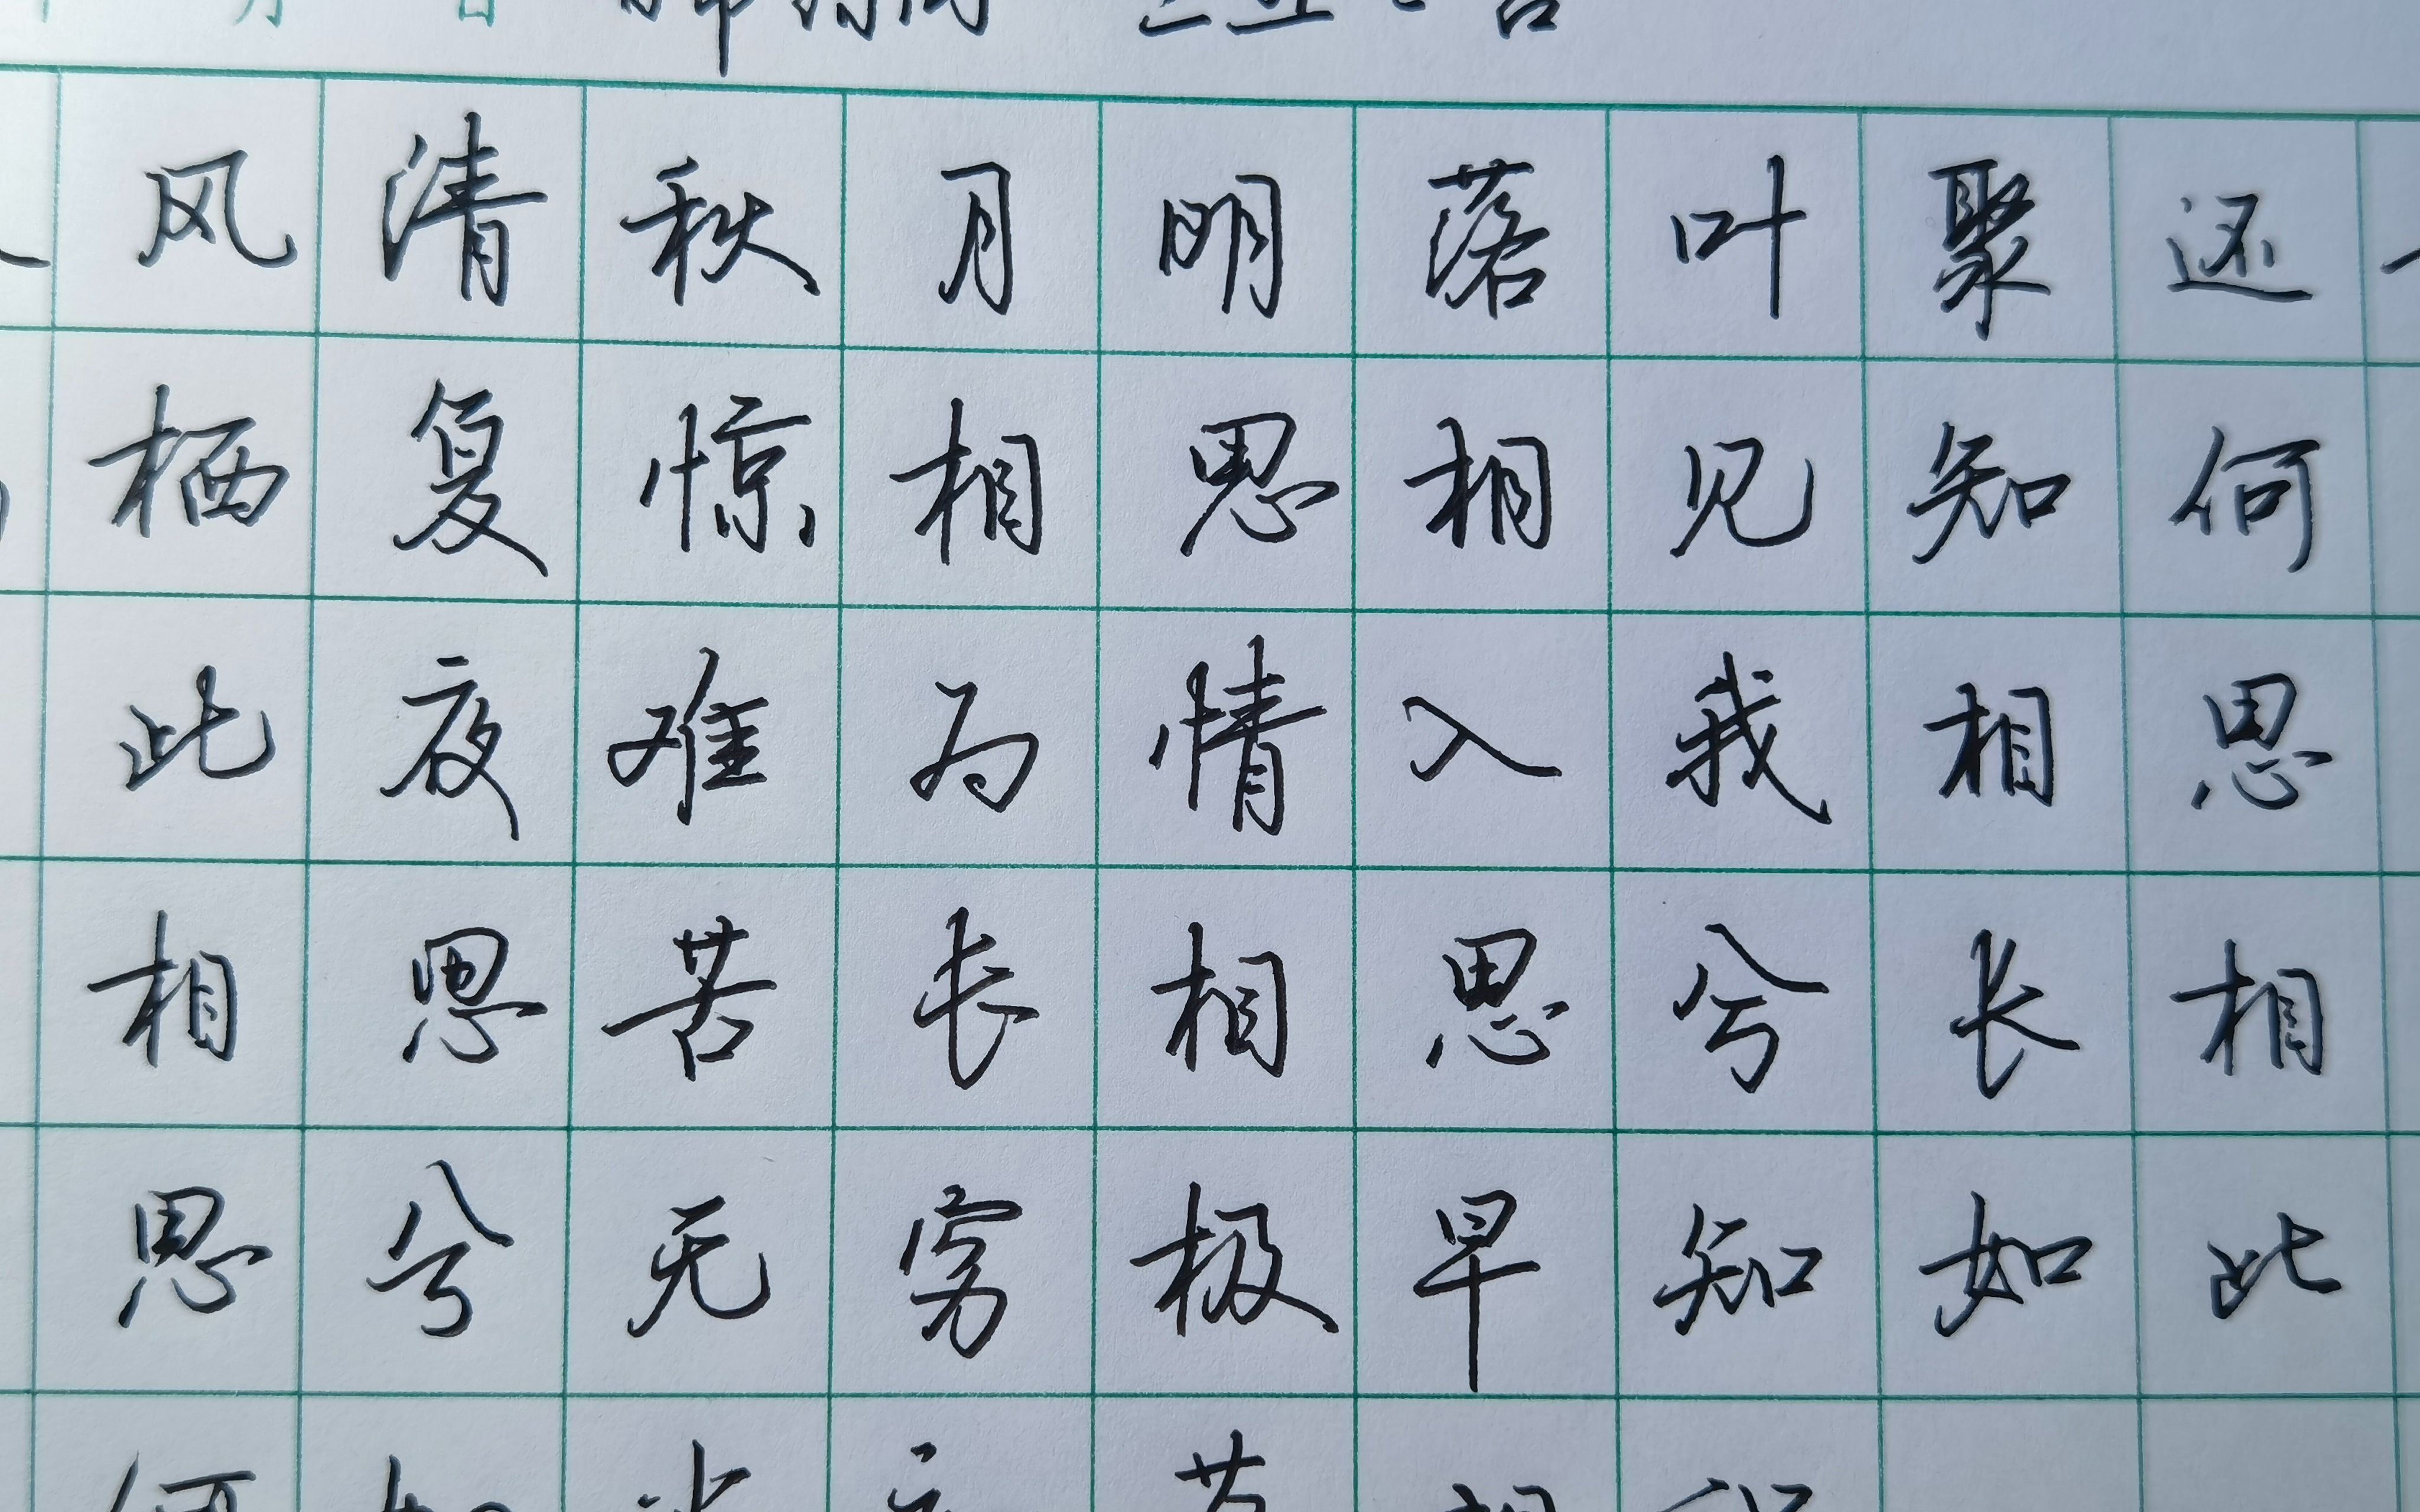 风清秋月明落叶聚还
栖复惊相思相见知何
此夜难为情入我相思
相思苦长相思兮长相
思兮无穷极早知如此